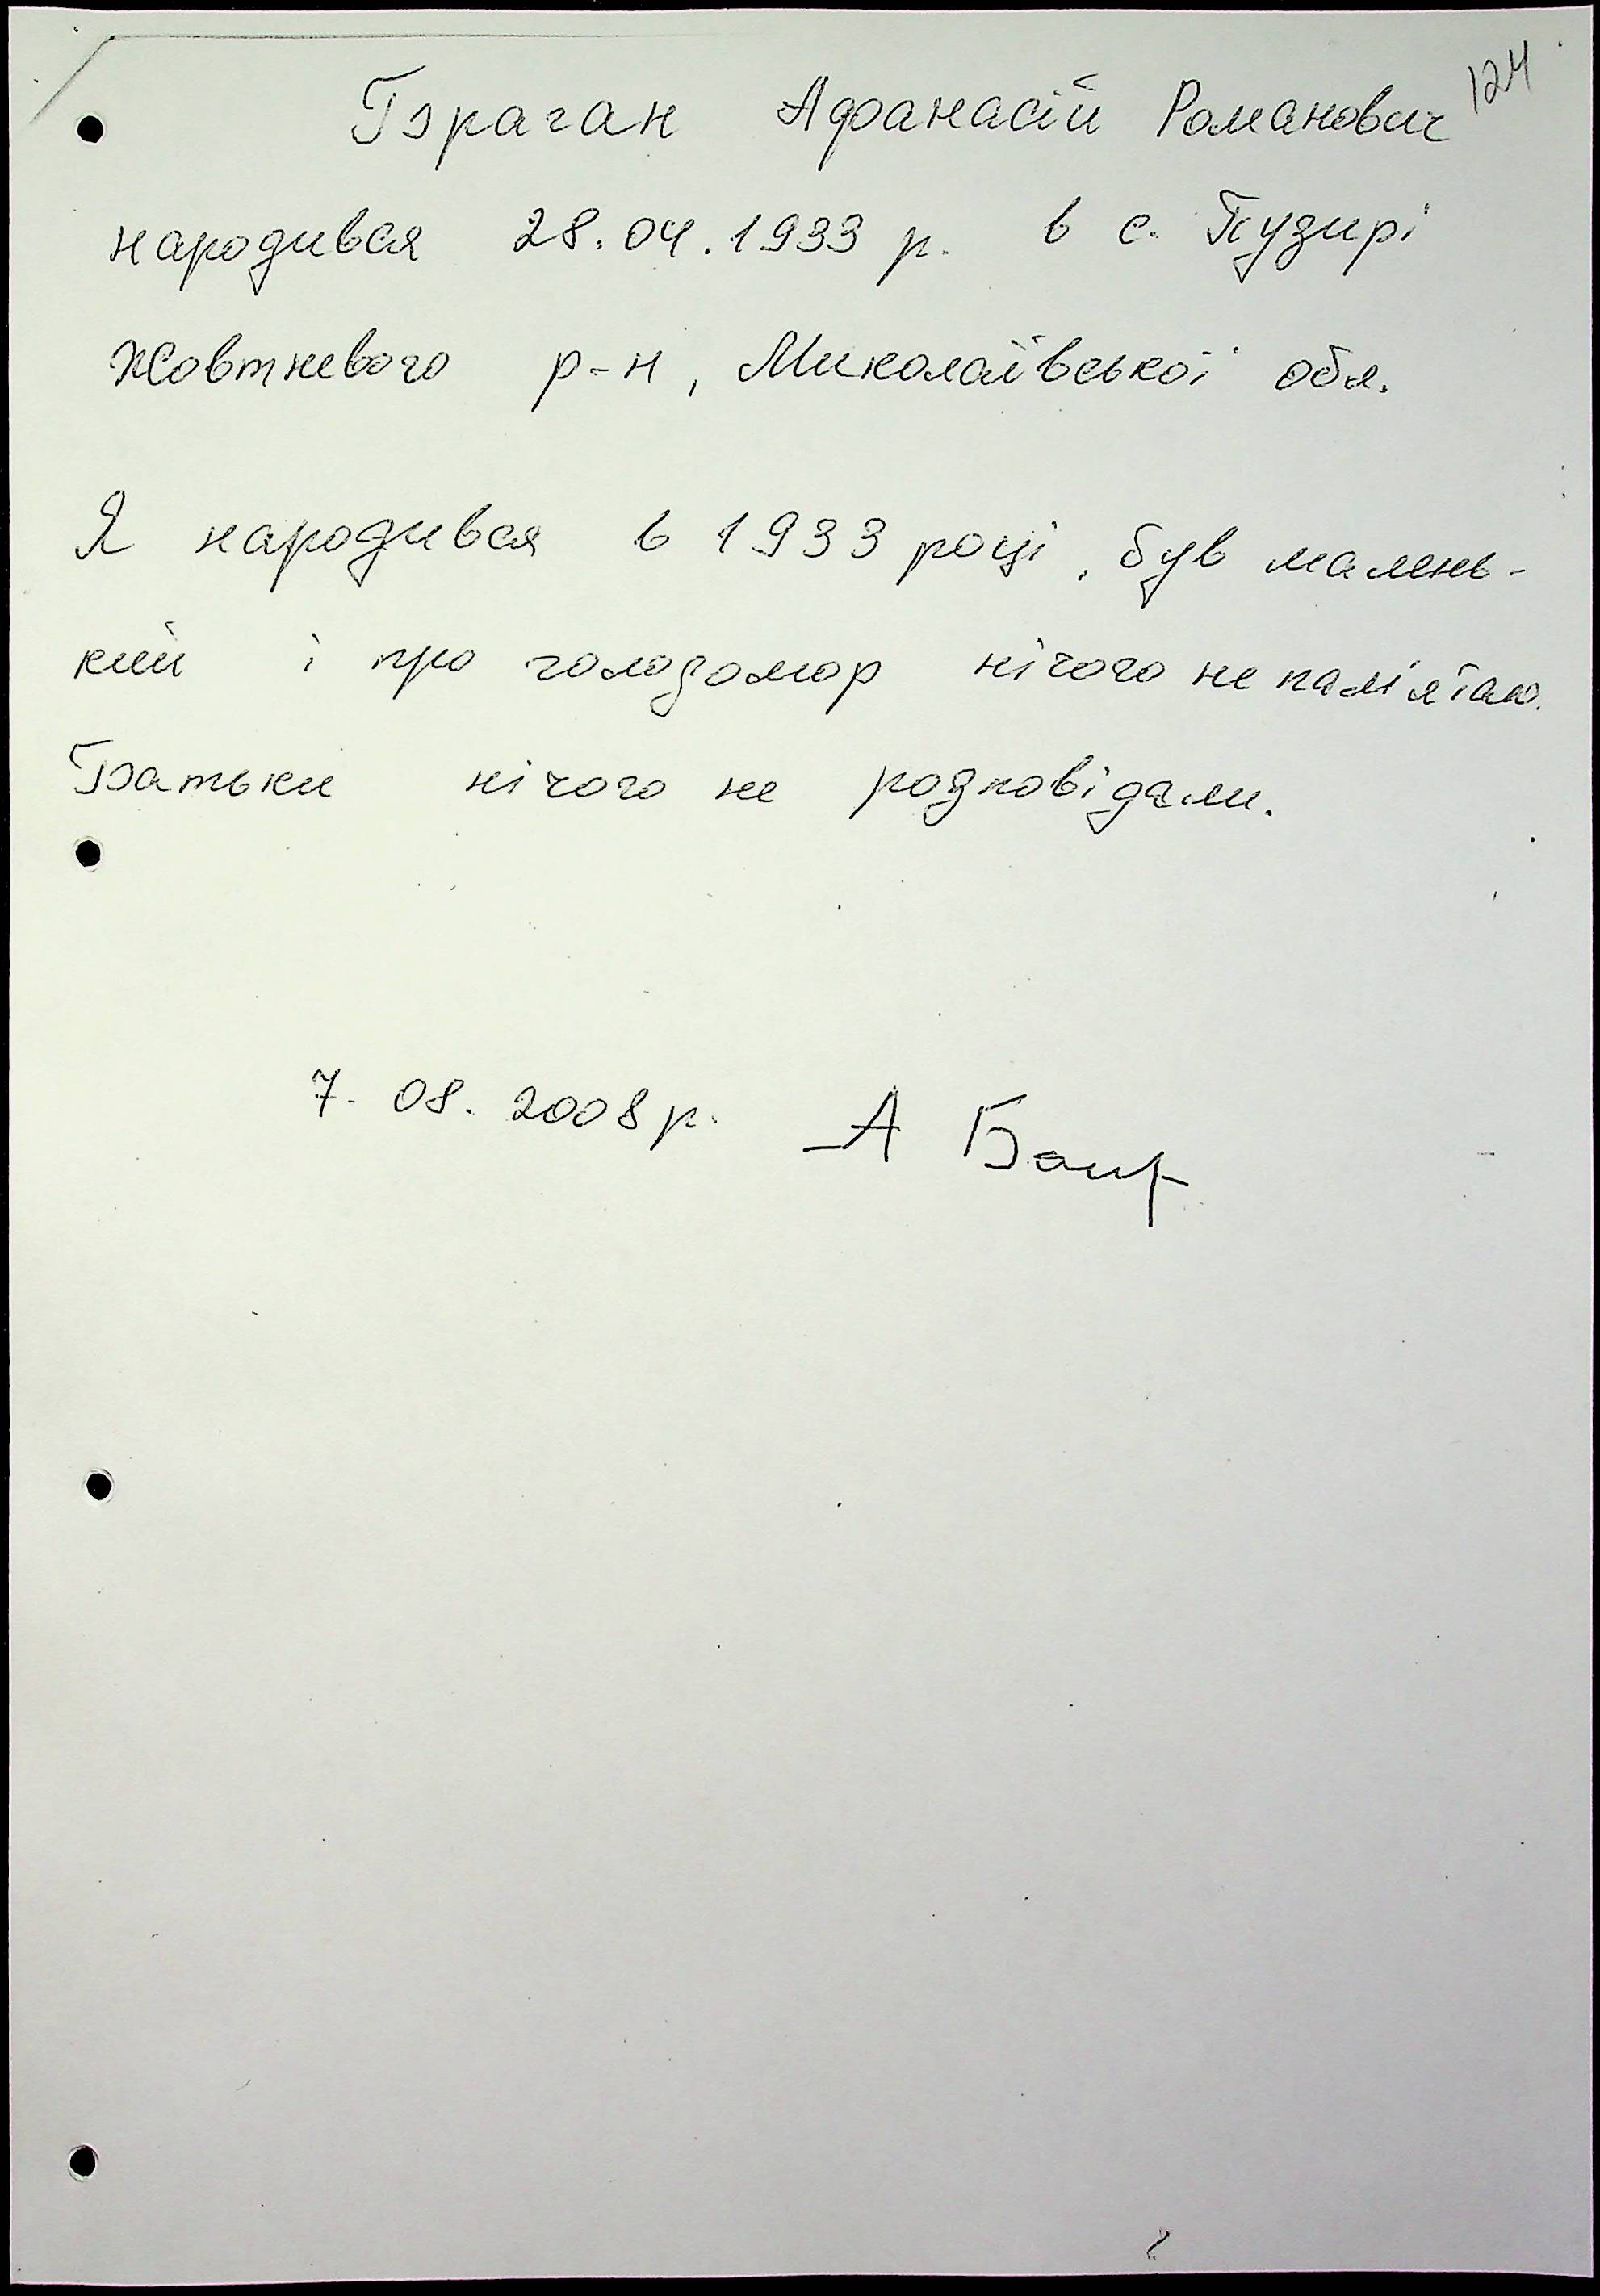 124
Браган Афанасій Романович
народився 28.04.1933 р. в с. Пузирі
Жовтневого р-н, Миколаївської обл.
Я народився в 1933 році, був малень-
кий і про голодомор нічого не памʼятаю.
Батьки нічого не розповідали.
7. 08. 2008 р. А